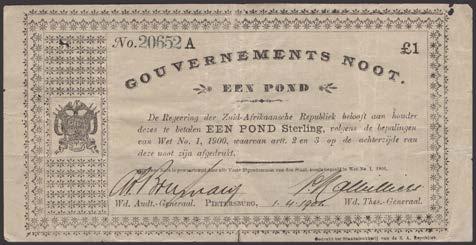 No. 20652 A £1
GOUVERNEMENTS NOOT.
EEN POND
De Regeering der Zuid-Afrikaansche Republiek belooft aan houder
dezes te betalen EEN POND Sterling, volgens de bepalingen
van Wet No. 1, 1900, waarvan artt. 2 en 3 op de achterzijde van
deze noot zijn afgedrukt.
Wd. Audt.-Generaal. PIETERSBURG, 1.4.1901 Wd. Thes.-Generaal.